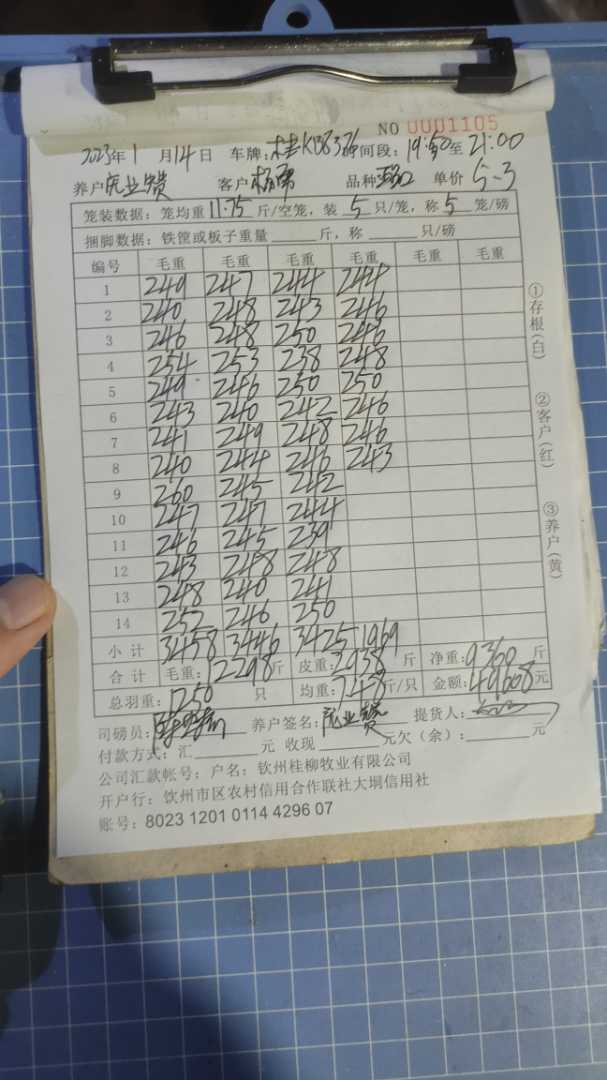 NO 0001105
2023年1月14日 车牌:桂KB8376 时间段:19:50至21:00
养户 业贵 客户 杨 品种 单价 5.3
笼装数据:笼均重11.75斤/空笼,装5只/笼,称5笼/磅
捆脚数据:铁镗或板子重量 斤,称 只/磅
编号 毛重 毛重 毛重 毛重 毛重 毛重
1 249 247 244 244
2 240 248 243 246
3 246 248 250 246
4 254 253 238 248
5 249 246 250 250
6 243 240 242 246
7 241 249 248 246
8 240 244 246 243
9 260 245 242
10 247 247 244
11 246 245 239
12 243 248 248
13 248 240 241
14 252 246 250
小计 3458 3446 3425 1969
合计 毛重:12298斤 皮重:2938斤 净重:9360斤
总羽重:1250只 均重:7.48斤/只 金额:49608元
司磅员: 养户签名: 业贵 提货人:
付款方式:汇 元 收现 元欠(余): 元
公司汇款帐号:户名:钦州桂柳牧业有限公司
开户行:钦州市区农村信用合作联社大垌信用社
账号:8023 1201 0114 4296 07
①存根(白)
②客户(红)
③养户(黄)